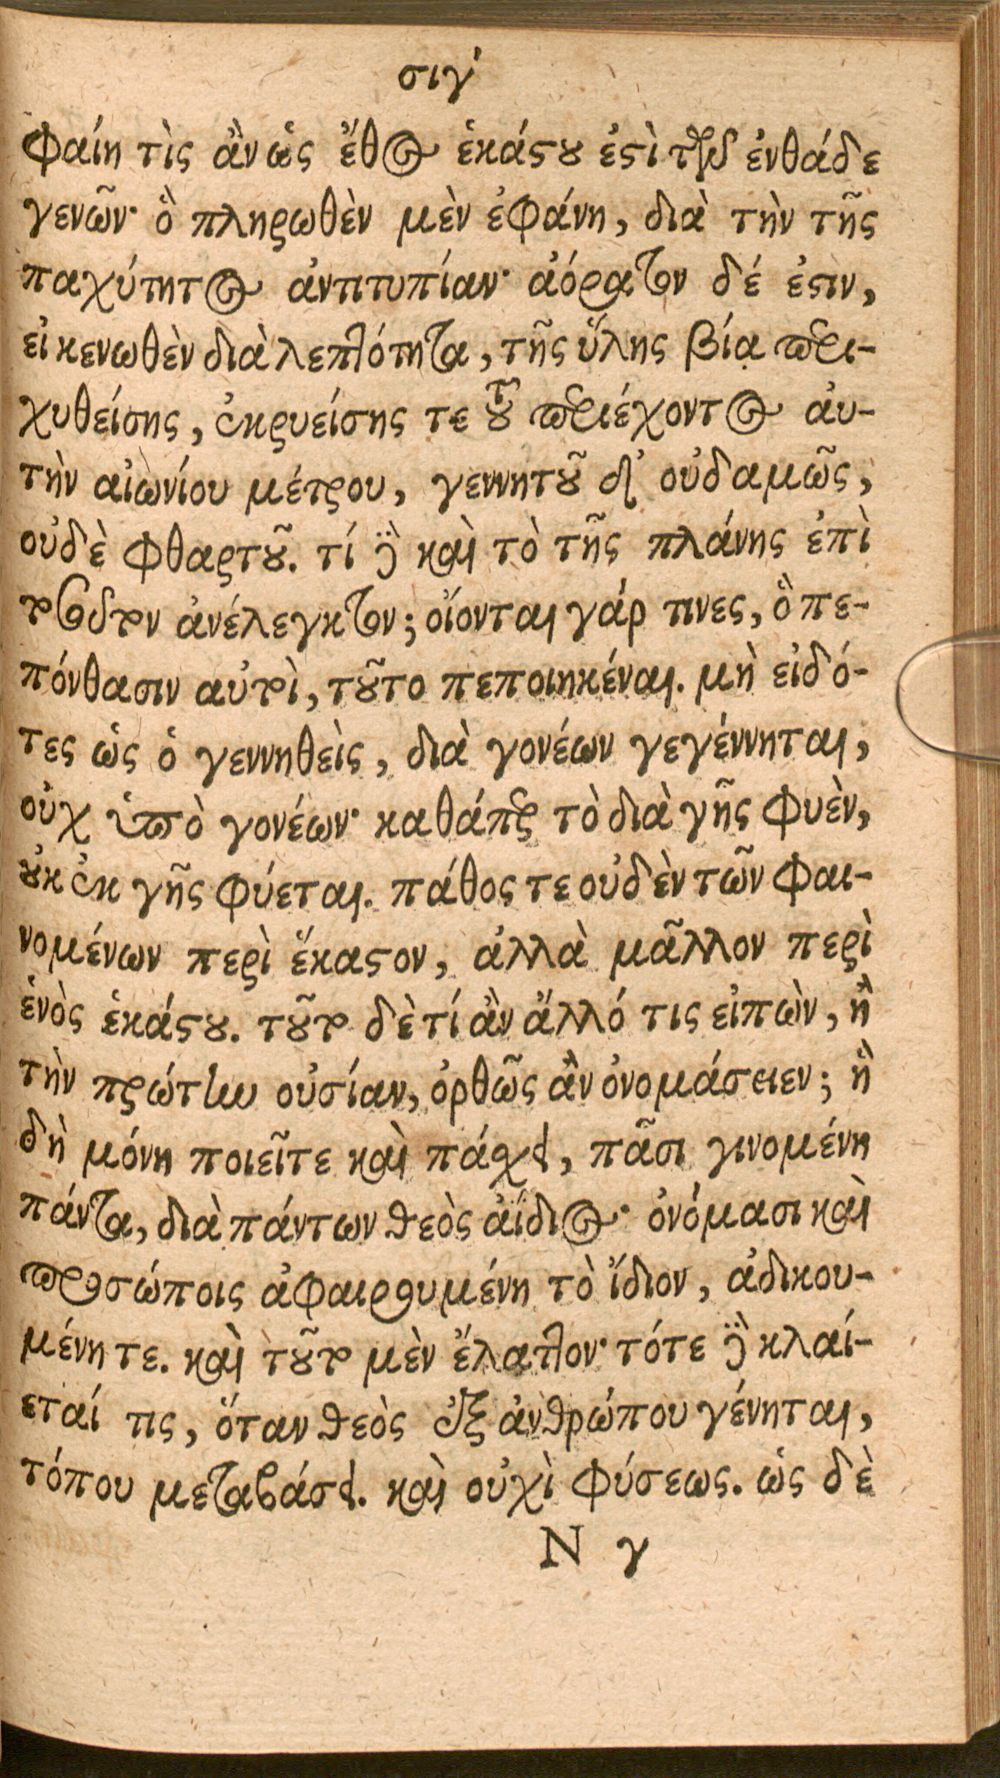 σιγʹ
φαίη τὶς ἂν ὡς ἔθος ἑκάστου ἐστὶ τῶν ἐνθάδε
γενῶν· ὃ πληρωθὲν μὲν ἐφάνη, διὰ τὴν τῆς
παχύτητος ἀντιτυπίαν· ἀόρατον δέ ἐστιν,
εἰ κενωθὲν διὰ λεπτότητα, τῆς ὕλης βίᾳ περι-
χυθείσης, ἐκρυείσης τε τοῦ περιέχοντος ἀυ-
τὴν αἰωνίου μέτρου, γεννητοῦ δ' οὐδαμῶς,
οὐδὲ φθαρτοῦ. τί δὲ καὶ τὸ τῆς πλάνης ἐπὶ
τοσοῦτον ἀνέλεγκτον; οἴονται γάρ τινες, ὃ πε-
πόνθασιν αὐτοὶ, τοῦτο πεποιηκέναι. μὴ εἰδό-
τες ὡς ὁ γεννηθεὶς, διὰ γονέων γεγέννηται,
οὐχ ὑπὸ γονέων· καθάπερ τὸ διὰ γῆς φυὲν,
οὐκ ἐκ γῆς φύεται. πάθος τε οὐδὲν τῶν φαι-
νομένων περὶ ἕκαστον, ἀλλὰ μᾶλλον περὶ
ἑνὸς ἑκάστου. τοῦτο δὲ τί ἂν ἄλλό τις εἰπὼν, ἢ
τὴν πρώτην οὐσίαν, ὀρθῶς ἂν ὀνομάσειεν; ἣ
δὴ μόνη ποιεῖτε καὶ πάσχει, πᾶσι γινομένη
πάντα, διὰ πάντων θεὸς ἀΐδιος· ὀνόμασι καὶ
προσώποις ἀφαιρουμένη τὸ ἴδιον, ἀδικου-
μένη τε. καὶ τοῦτο μὲν ἔλαττον· τότε δὲ κλαί-
εταί τις, ὅταν θεὸς ἐξ ἀνθρώπου γένηται,
τόπου μεταβάσει. καὶ οὐχὶ φύσεως. ὡς δὲ
Ν γ